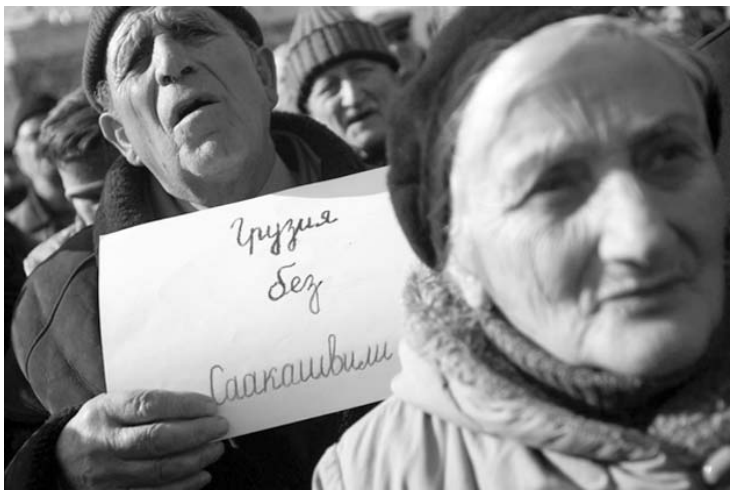 Грузия
без
Саакашвили